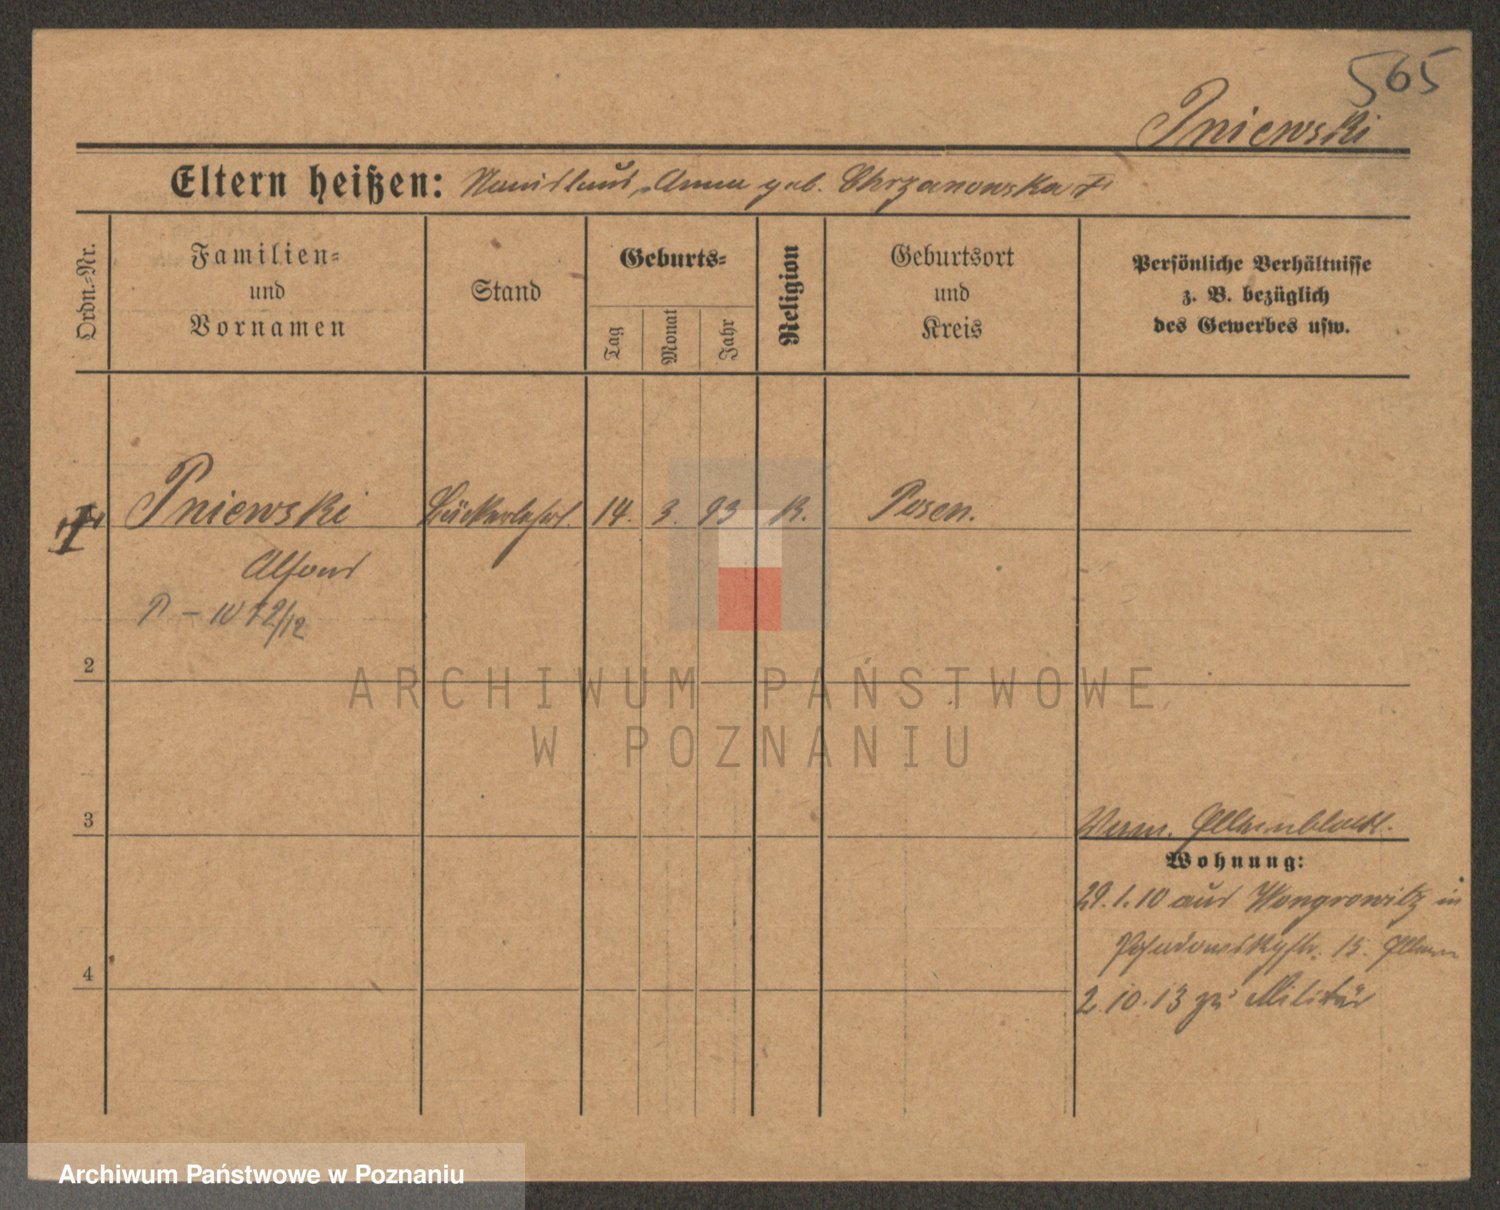 565
Pniewski
Eltern heißen: Stanislaus, Anna geb. Chrzanowska †
Ordn.-Nr.
Familien- und Vornamen
Stand
Geburts-
Tag
Monat
Jahr
Religion
Geburtsort und Kreis
Persönliche Verhältnisse
z. B. bezüglich
des Gewerbes usw.
1 Pniewski Bäckerlehrl. 14. 3. 93 K. Posen.
Alfons
2
ARCHIWUM PAŃSTWOWE
W POZNANIU
3
Wohnung:
29.1.10 aus Wongrowitz in
15.
4
2.10.13 zu Militär
Archiwum Państwowe w Poznaniu